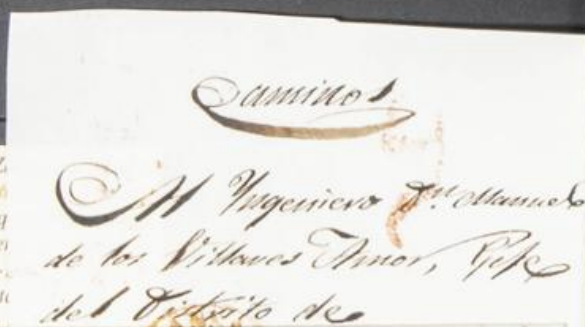 Caminos
Al Yngeniero Dn. Manuel
de los Villares Amor, Gefe
del Distrito de